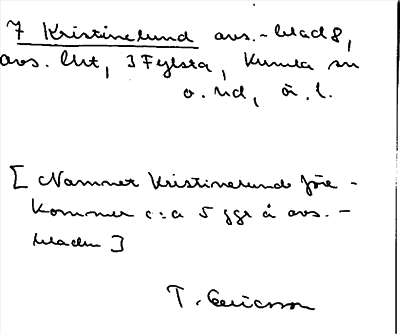 7 Kristinelund avs.-blad 8,
avs. Utt, 3 Fylsta, Kumla sn
o. hd, ör. l.
[ Namnet Kristinelund före-
kommer c:a 5 ggr å avs.-
bladen ]
T. Ericsson